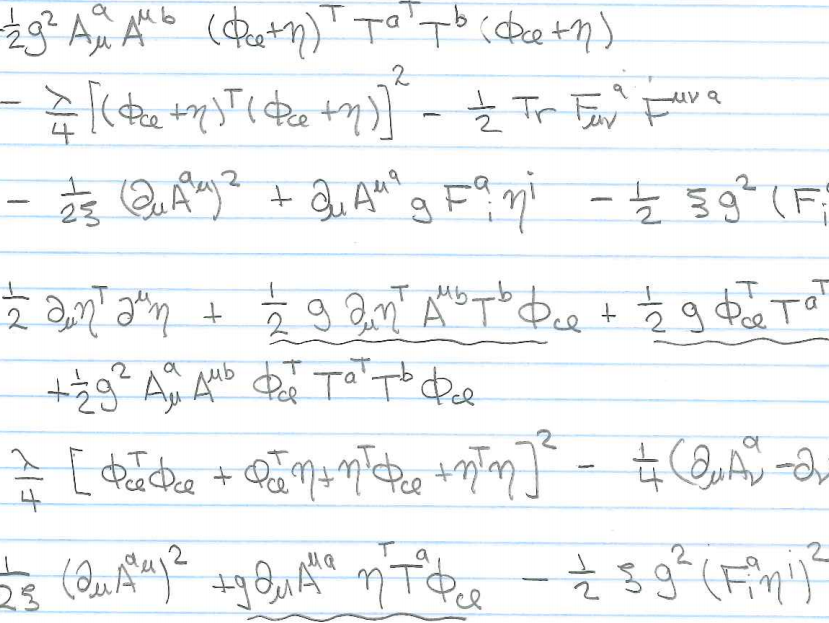 ½g² A_μ^a A^{μb} (ϕ_cl+η)^T T^{aT} T^b (ϕ_cl+η)
− λ/4 [(ϕ_cl+η)^T(ϕ_cl+η)]² − ½ Tr F_{μν}^a F^{μνa}
− 1/2ξ (∂_μA^{aμ})² + ∂_μA^{μa} g F^a_i η^i − ½ ξg² (F_i^a
½ ∂_μη^T ∂^μη + ½ g ∂_μη^T A^{μb}T^b ϕ_cl + ½ g ϕ_cl^T T^{aT}
+½g² A_μ^a A^{μb} ϕ_cl^T T^{aT} T^b ϕ_cl
λ/4 [ϕ_cl^Tϕ_cl + ϕ_cl^Tη+η^Tϕ_cl+η^Tη]² − ¼(∂_μA_ν^a−∂_ν
1/2ξ (∂_μA^{aμ})² +g∂_μA^{μa} η^T T^a ϕ_cl − ½ ξg² (F_i^aη^i)²